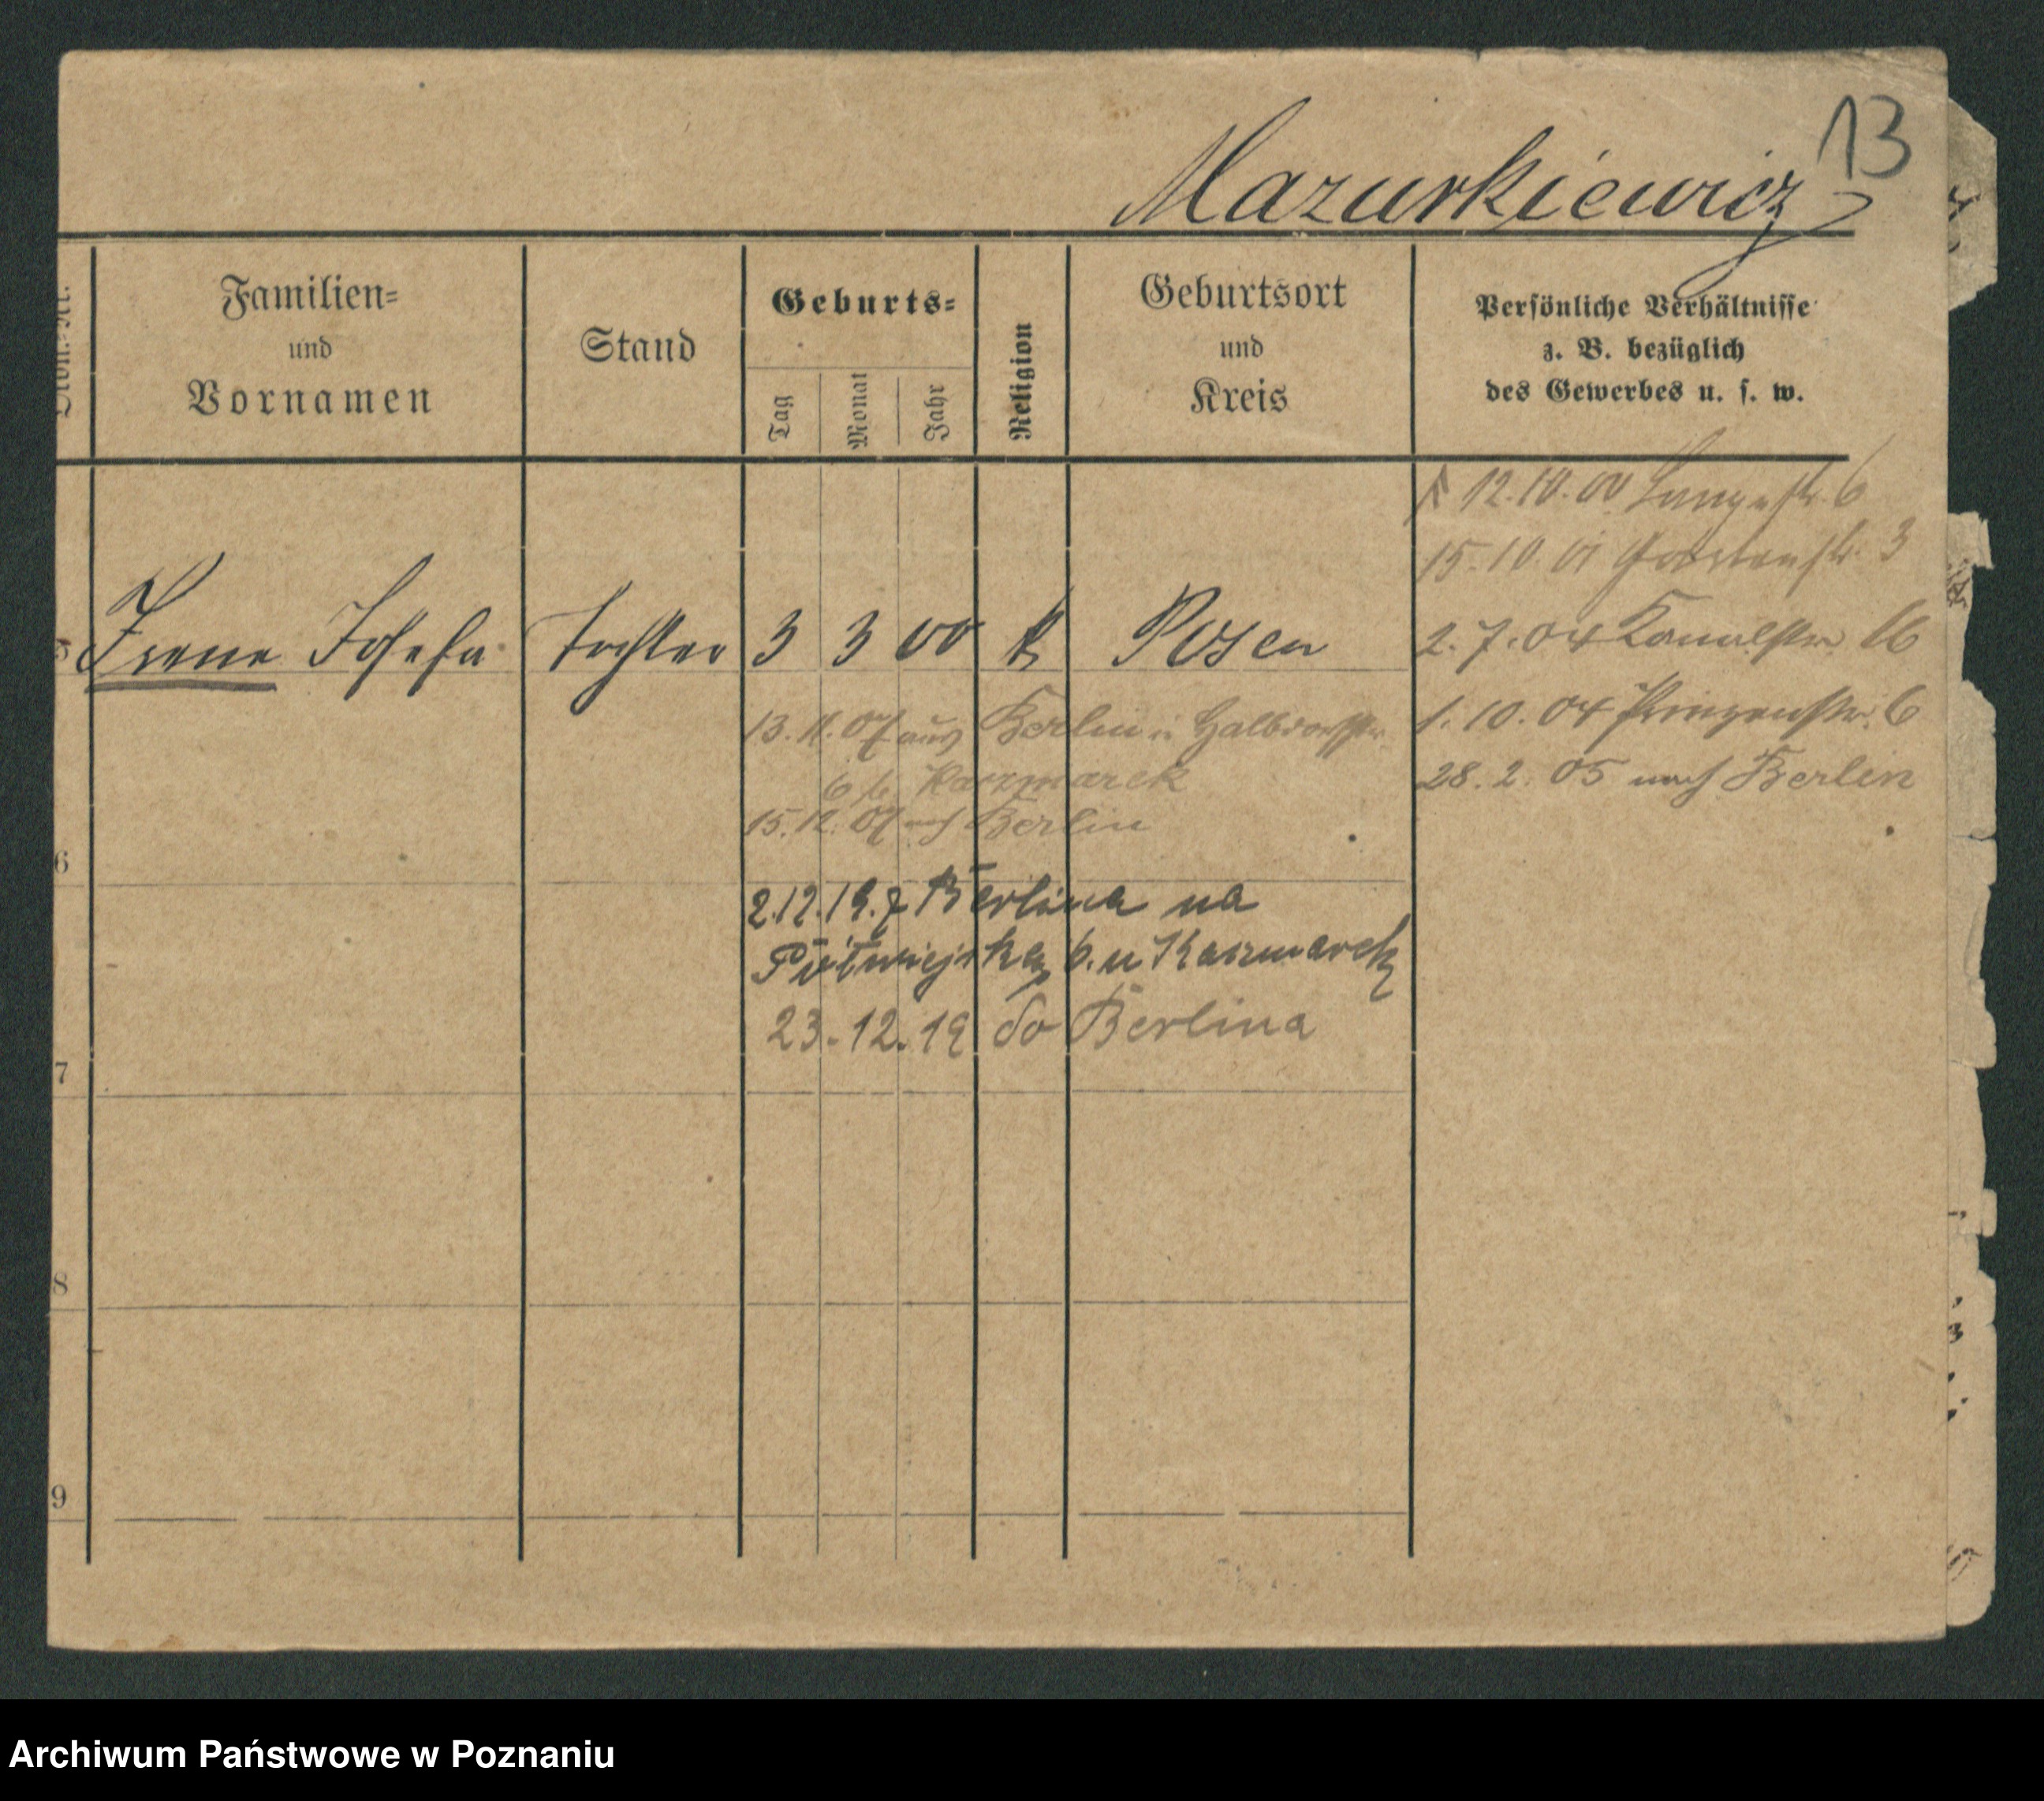 13
Mazurkiewicz
Familien-
und
Vornamen
Stand
Geburts-
Tag
Monat
Jahr
Religion
Geburtsort
und
Kreis
Persönliche Verhältnisse
z. B. bezüglich
des Gewerbes u. s. w.
12.10.00 Langestr. 6
15.10.01 Gartenstr. 3
5 Irene Josefa Tochter 3 3 00 k Posen
2.7.04 Kanalstr. 16
1.10.04 Prinzenstr. 6
28.2.05 nach Berlin
13.11.07 aus Berlin Halbdorfstr.
6 b. Kaczmarek
15.12.07 nach Berlin
6
2.12.19. z Berlina na
Półwiejską 6. u Kaczmarek
23.12.19 do Berlina
7
8
9
Archiwum Państwowe w Poznaniu